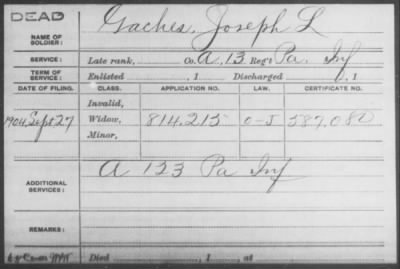 DEAD
NAME OF SOLDIER: Gaches, Joseph L
SERVICE: Late rank, Co. A, 13 Reg't Pa. Inf
TERM OF SERVICE: Enlisted , 1 Discharged , 1
DATE OF FILING. CLASS. APPLICATION NO. LAW. CERTIFICATE NO.
Invalid,
1904, Sept 27 Widow, 814,215 G-J 587,080
Minor,
ADDITIONAL SERVICES: A 123 Pa Inf
REMARKS:
Died , 1 , at